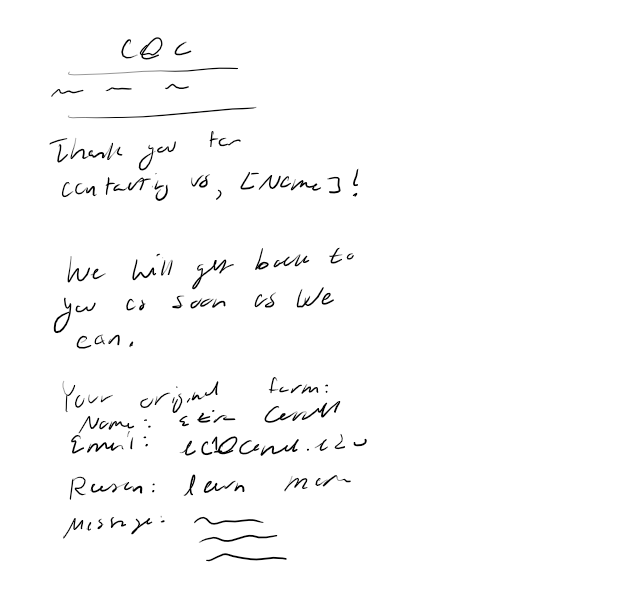 CQC
Thank you for
contacting us, [Name]!
We will get back to
you as soon as we
can.
Your original form:
Name:
Email:
Reason: learn more
Message: